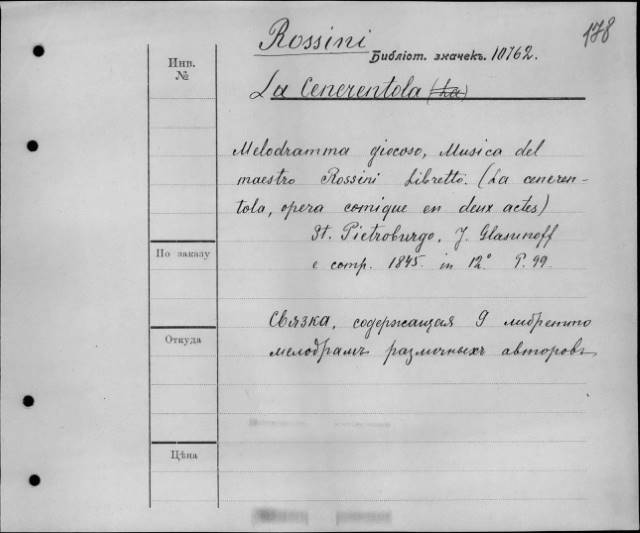 178
Rossini
Библіот. значекъ. 10762.
Инв.
№
La Cenerentola (La)
Melodramma giocoso, Musica del
maestro Rossini Libretto. (La ceneren-
tola, opera comique en deux actes)
St. Pietroburgo, J. Glasunoff
e comp. 1845. in 12° P. 99.
По заказу
Связка, содержащая 9 либретто
Откуда
мелодрамъ различныхъ авторовъ
Цѣна